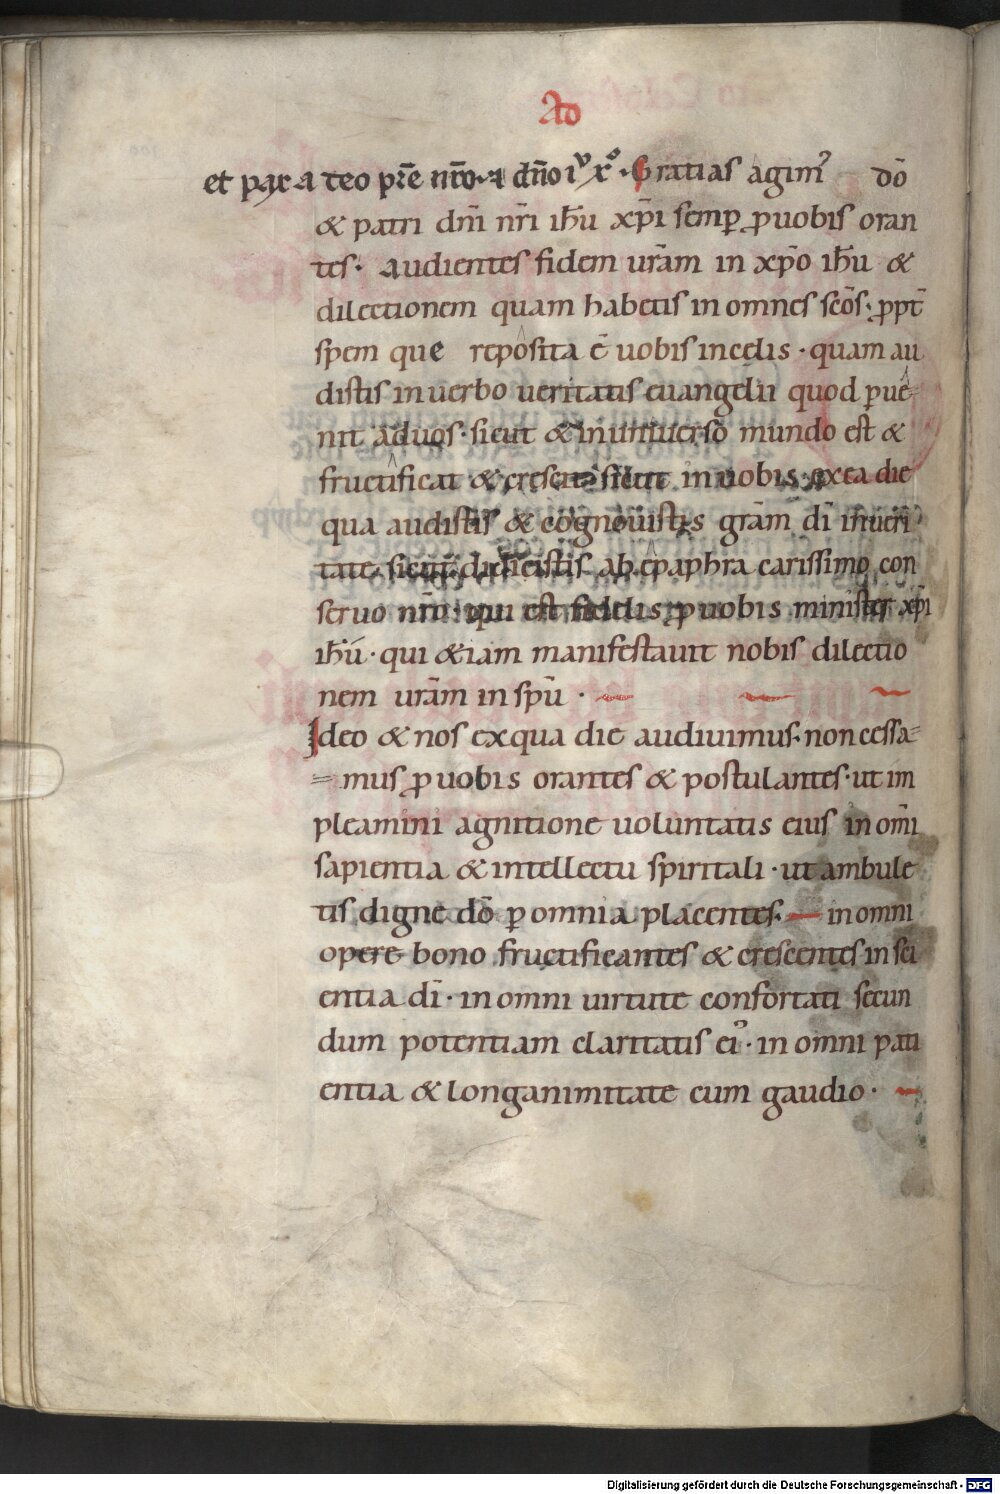 Ad
et pax a deo prē nrō· ⁊ dn̄o ıᵛ xᵒ· Gratias agimꝰ dō
& patri dn̄i nr̄i ih̄u xp̄i semꝑ ꝓ uobis oran
tes· audientes fidem ur̄am in xp̄o ih̄u &
dilectionem quam habetis in omnes sc̄os· ꝓpt̄
spem que reposita ē uobis in celis · quam au
distis in uerbo ueritatis euangelii quod ꝑue
nit ad uos· sicut & in uniuerso mundo est &
fructificat & crescit sicut in uobis· ex ea die
qua audistis & cognouistis grām dī in ueri
tate· sicut didicistis ab epaphra carissimo con
seruo nrō· qui est fidelis ꝓ uobis minister xp̄i
ih̄u · qui &iam manifestauit nobis dilectio
nem ur̄am in sp̄u ·
Ideo & nos ex qua die audiuimus· non cessa=
= mus ꝓ uobis orantes & postulantes· ut im
pleamini agnitione uoluntatis eius in om̄i
sapientia & intellectu spiritali · ut ambule
tis digne dō ꝑ omnia placentes· in omni
opere bono fructificantes & crescentes in sci
entia dī · in omni uirtute confortati secun
dum potentiam claritatis eiꝰ · in omni pati
entia & longanimitate cum gaudio ·
Digitalisierung gefördert durch die Deutsche Forschungsgemeinschaft - DFG